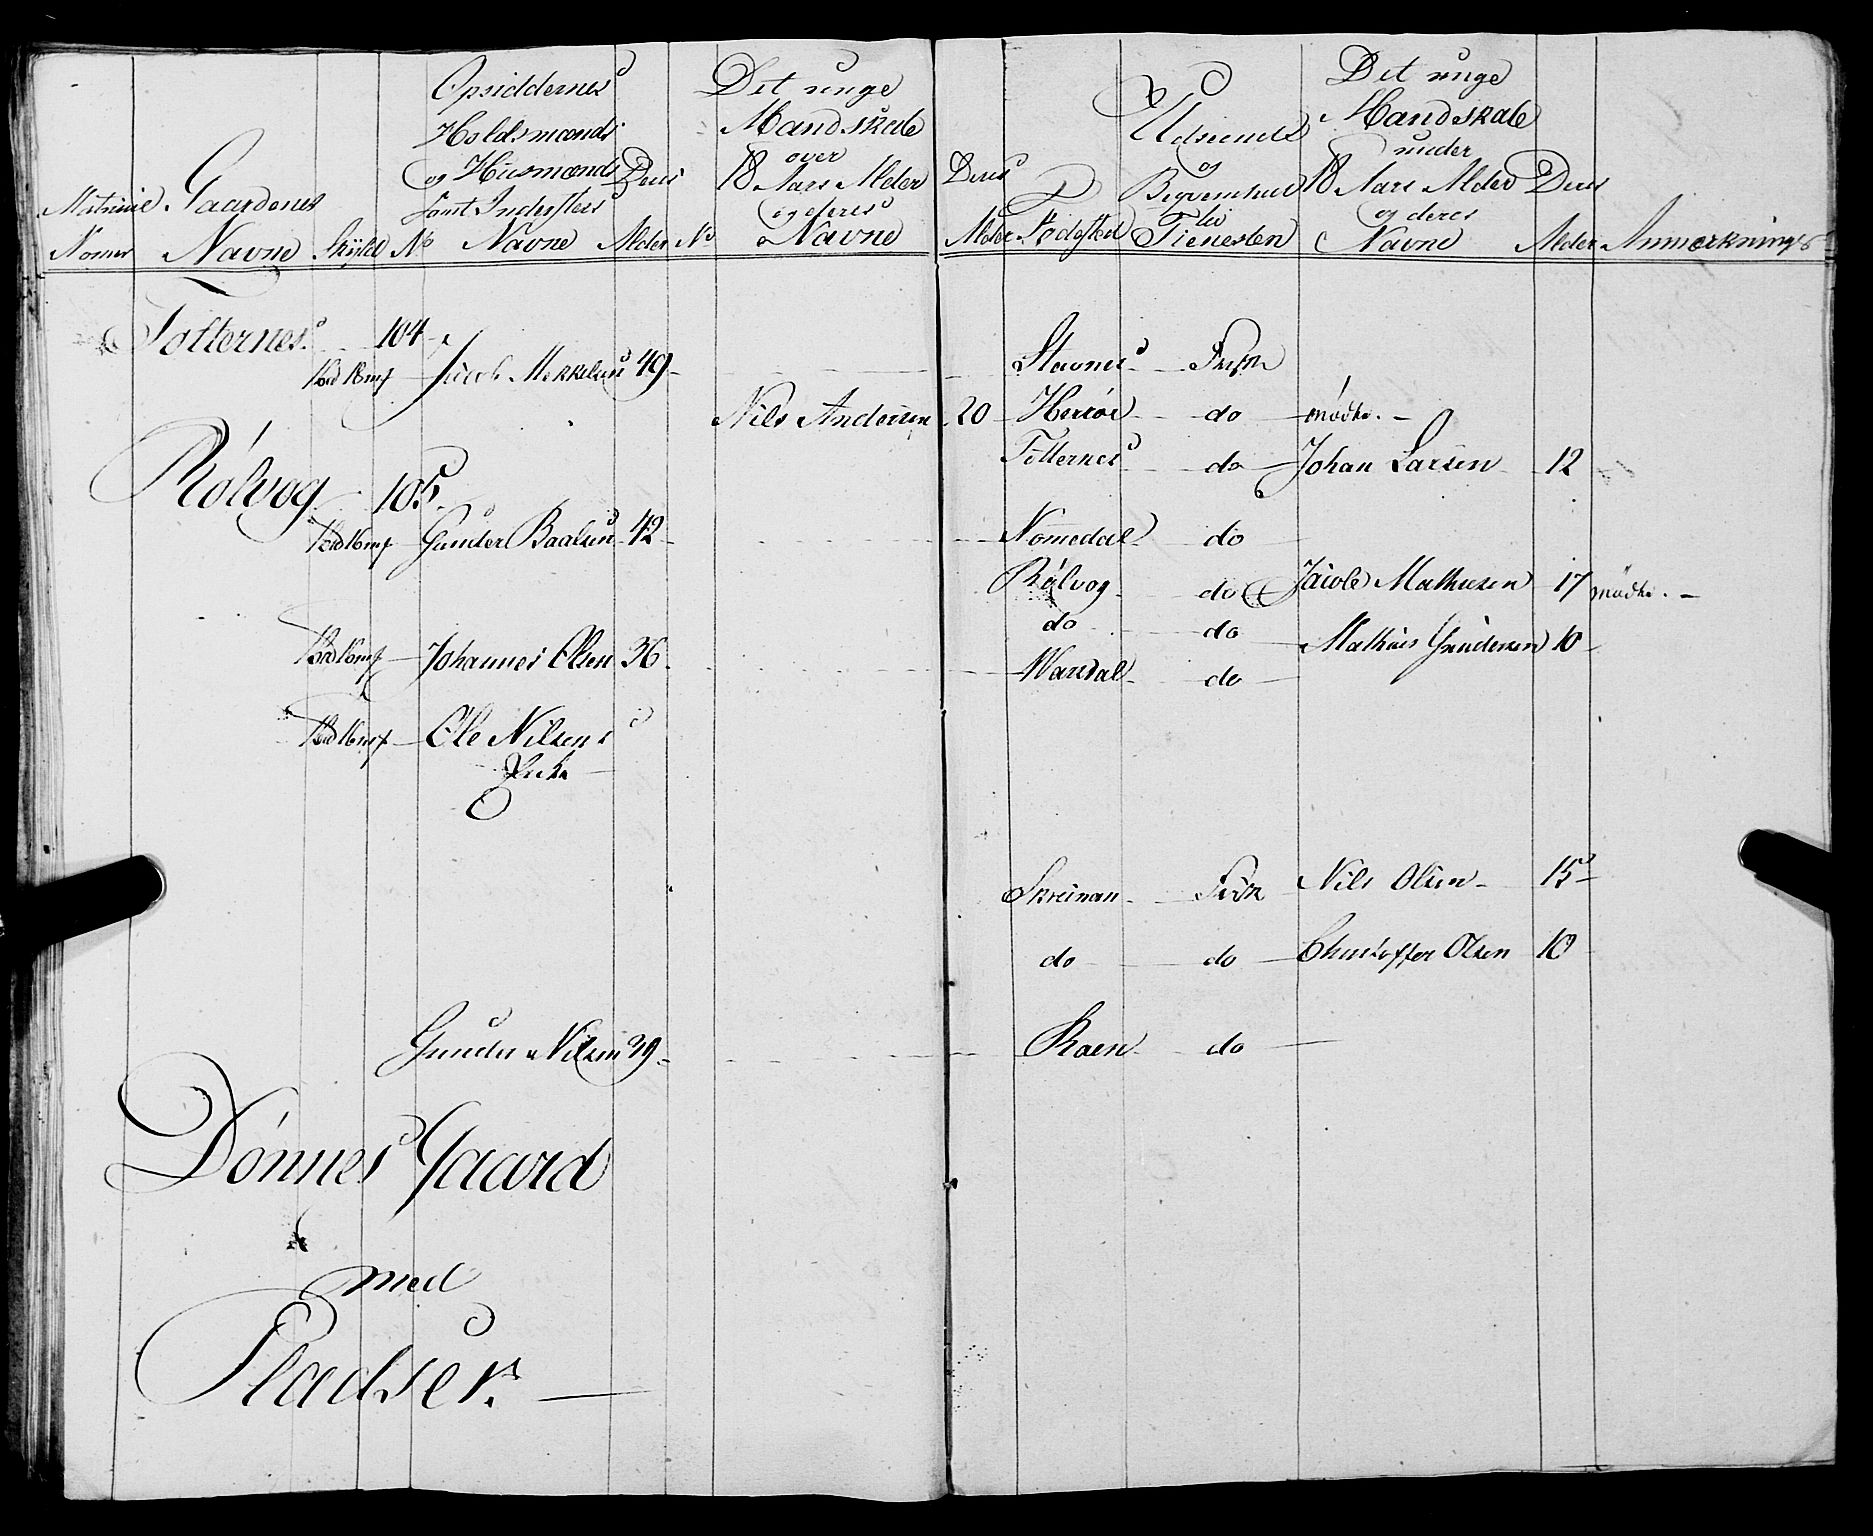 Matricul Nomer
Gaardenes Navne
Skyld
No
Opsiddernes Holdsmænds og Huusmænds samt Indersters Navne
Deres Alder
No
Det unge Mandskab over 18 Aars Alder og deres Navne
Deres Alder
Fødested
Udseende og Beqvemhed til Tienesten
Det unge Mandskab under 18 Aars Alder og deres Navne
Deres Alder
Anmærkninger
Totternes 104
Jacob Mekkelsen 49 Stavnes Frisk
Nils Andersen 20 Herrøe do mødte.
Totternes do Johan Larsen 12
Rølvog 105
Gunder Baalsen 42 Nommedal do
Rølvog do Jacob Mathiesen 17 mødte.
do do Mathias Gundersen 10
Johannes Olsen 36 Wandal do
Ole Nilsens
Enke
Skreinan Frisk Nils Olsen 15
do do Christoffer Olsen 10
Gunder Nilsen 39 Raen do
Dønnes Gaard
med
Pladser.